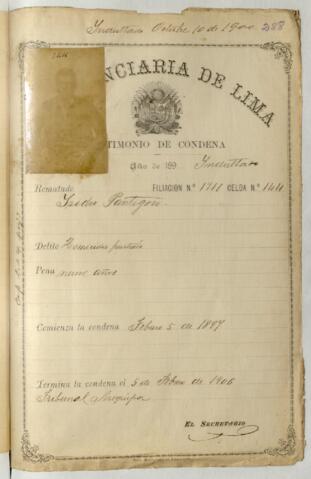 Indultado Octubre 10 de 1900 288
NCIARIA DE LIMA
TIMONIO DE CONDENA
Año de 189 Indultado
Rematado FILIACIÓN N.º 1711 CELDA N.º 144
Isidro Pantigoso
Delito Homicidio
Pena nueve años
Comienza la condena Febrero 5 de 1897
Termina la condena el 5 de Febrero de 1906
Tribunal Arequipa
EL SECRETARIO